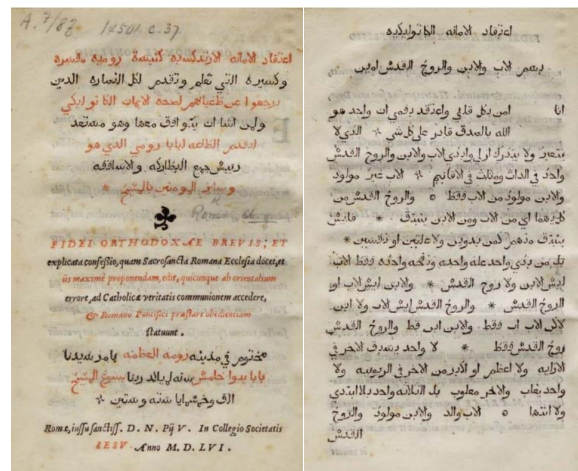 A.7/83 14501.c.37.
اعتقاد الامانه الارتدكسيه كنيسة روميه
التي تعلم وتقدم لكل النصاره الدين
رجعوا عن
ولمن اشا ان يتوافق معها وهو مستعد
الطاعه لبابا رومي الدي هو
رييس جميع البطاركه والاساقفه
بالمسيح
FIDEI ORTHODOXAE BREVIS, ET
explicata confessio, quam Sacrosancta Romana Ecclesia docet, et
iis maximè proponendam, edit, quicunque ab orientalium
errore, ad Catholicae veritatis communionem accedere,
& Romano Pontifici praestare obedientiam
statuunt.
مختوم في مدينه رومه العظمه بامر سيدنا
بابا خامس سنه لميلاد ربنا يسوع المسيح
الف وخمس مايا سته و ستين
Romae, iussu sanctiss. D. N. Pij V. In Collegio Societatis
IESV. Anno M. D. LVI.
اعتقاد الامانه الكاتوليكيه
بسم الاب والابن والروح القدس امين
انا امن بكل قلبي واعتقد بفمي ان واحد هو
الله بالصدق قادر على كل شي * الدي لا
يتغير ولا يتدرك ازلي وابدي الاب والابن والروح القدس
واحد في الدات ومتلت في الاقانيم * الاب غير مولود
والابن مولود من الاب فقط ه والروح القدس من
كليهما اي من الاب ومن الابن *
الابن ولا روح القدس * والابن ليس الاب او
الروح القدس * والروح القدس ليس الاب ولا ابن
لاكن الاب اب فقط والابن ابن فقط والروح القدس
روح القدس فقط * لا واحد يسبق الاخر في
الازليه ولا اعظم او لاكبر من الاخر في الربوبيه ولا
واحد يغلب والاخر مغلوب بل التلاته واحد بلا ابتدي
ولا انتها ه الاب والد والابن مولود والروح
القدس